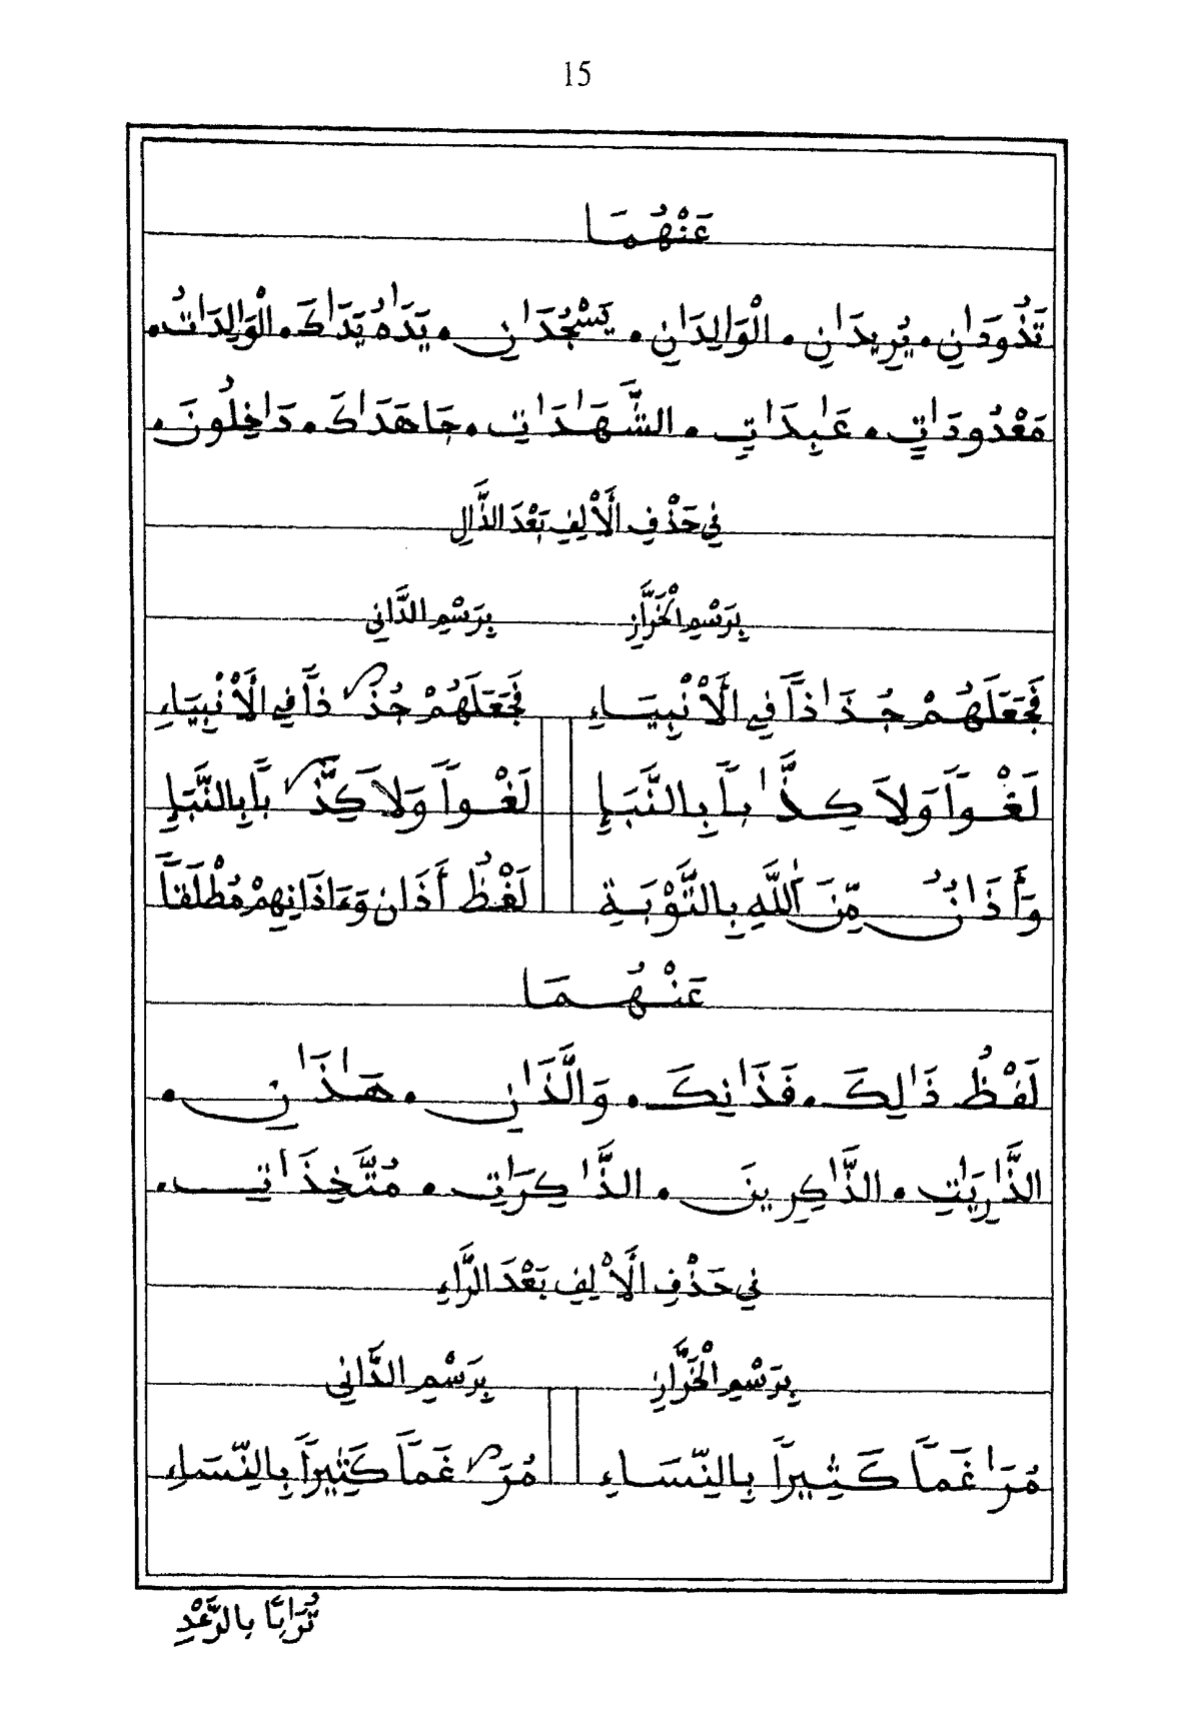 15
عَنْهُمَا
تَذُودَانِ • يُرِيدَانِ • الْوَالِدَانِ • يَسْجُدَانِ • يَدَاهُ يَدَاكَ • الْوَالِدَاتُ •
مَعْدُودَاتٍ • عَابِدَاتٍ • الشَّهَادَاتِ • جَاهَدَاكَ • دَاخِلُونَ •
فِي حَذْفِ الْأَلِفِ بَعْدَ الذَّالِ
بِرَسْمِ الْخَرَّازِ بِرَسْمِ الدَّانِي
فَجَعَلَهُمْ جُذَاذاً فِي الْأَنْبِيَاءِ فَجَعَلَهُمْ جُذَاذاً فِي الْأَنْبِيَاءِ
لَغْواً وَلَا كِذَّاباً بِالنَّبَإِ لَغْواً وَلَا كِذَّاباً بِالنَّبَإِ
وَأَذَانٌ مِّنَ اللَّهِ بِالتَّوْبَةِ لَفْظُ أَذَان وَءَاذَانِهِمْ مُطْلَقاً
عَنْهُمَا
لَفْظُ ذَالِكَ • فَذَانِكَ • وَالَّذَانِ • هَاذَانِ •
الذَّارِيَاتِ • الذَّاكِرِينَ • الذَّاكِرَاتِ • مُتَّخِذَاتِ •
فِي حَذْفِ الْأَلِفِ بَعْدَ الرَّاءِ
بِرَسْمِ الْخَرَّازِ بِرَسْمِ الدَّانِي
مُرَاغَماً كَثِيراً بِالنِّسَاءِ مُرَاغَماً كَثِيراً بِالنِّسَاءِ
تُرَاباً بِالرَّعْدِ